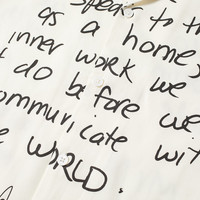 speaks to th
as a home,
inner work we
t do before we
ommunicate wit
e WORLD.